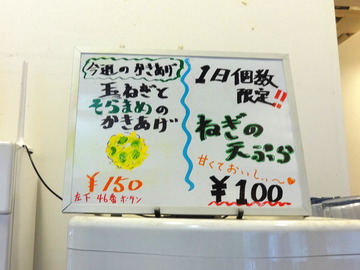 今週のかきあげ
玉ねぎと
そらまめの
かきあげ
¥150
左下 46番ボタン
1日個数
限定!!
ねぎの
天ぷら
甘くておいし〜い
¥100